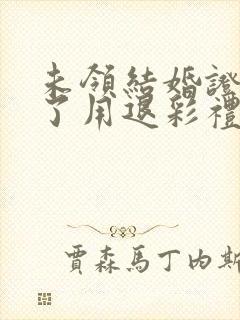 未領結婚證
了用退彩禮
賈森馬丁內斯